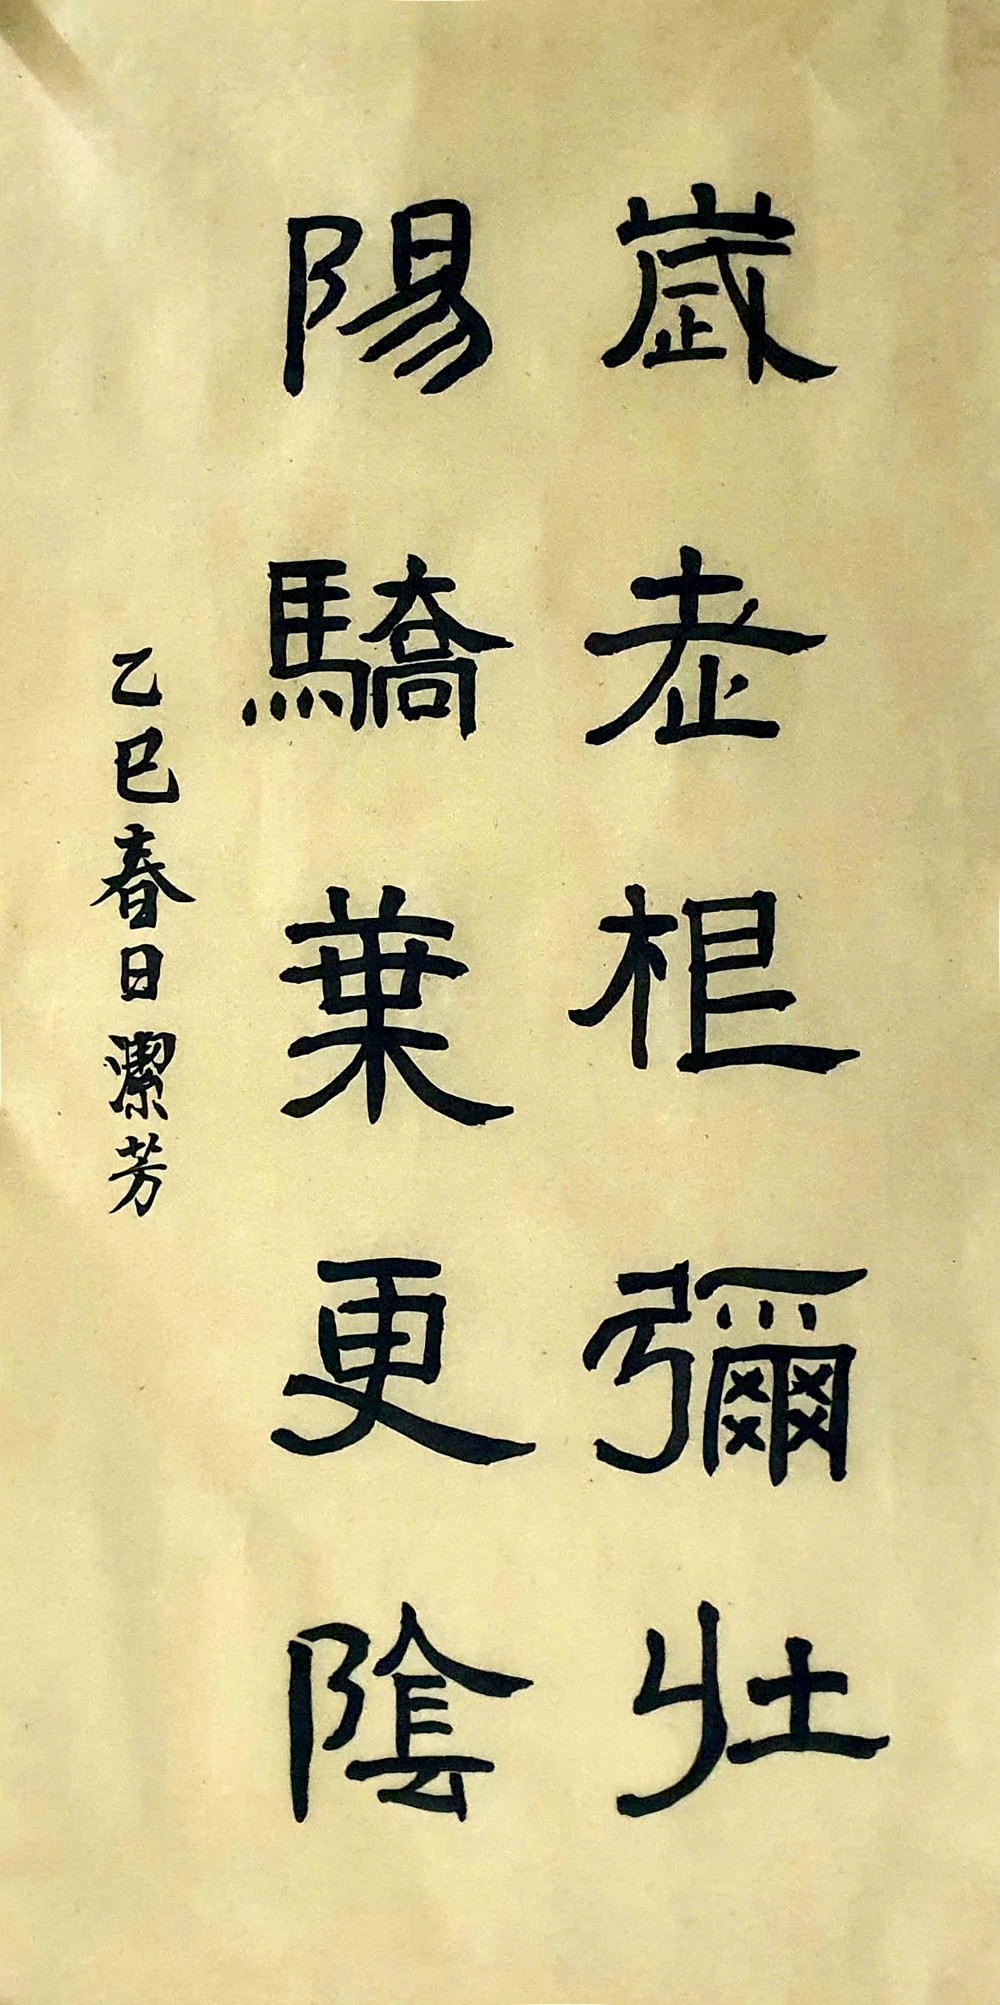 歲老根彌壯
陽驕葉更陰
乙巳春日潔芳